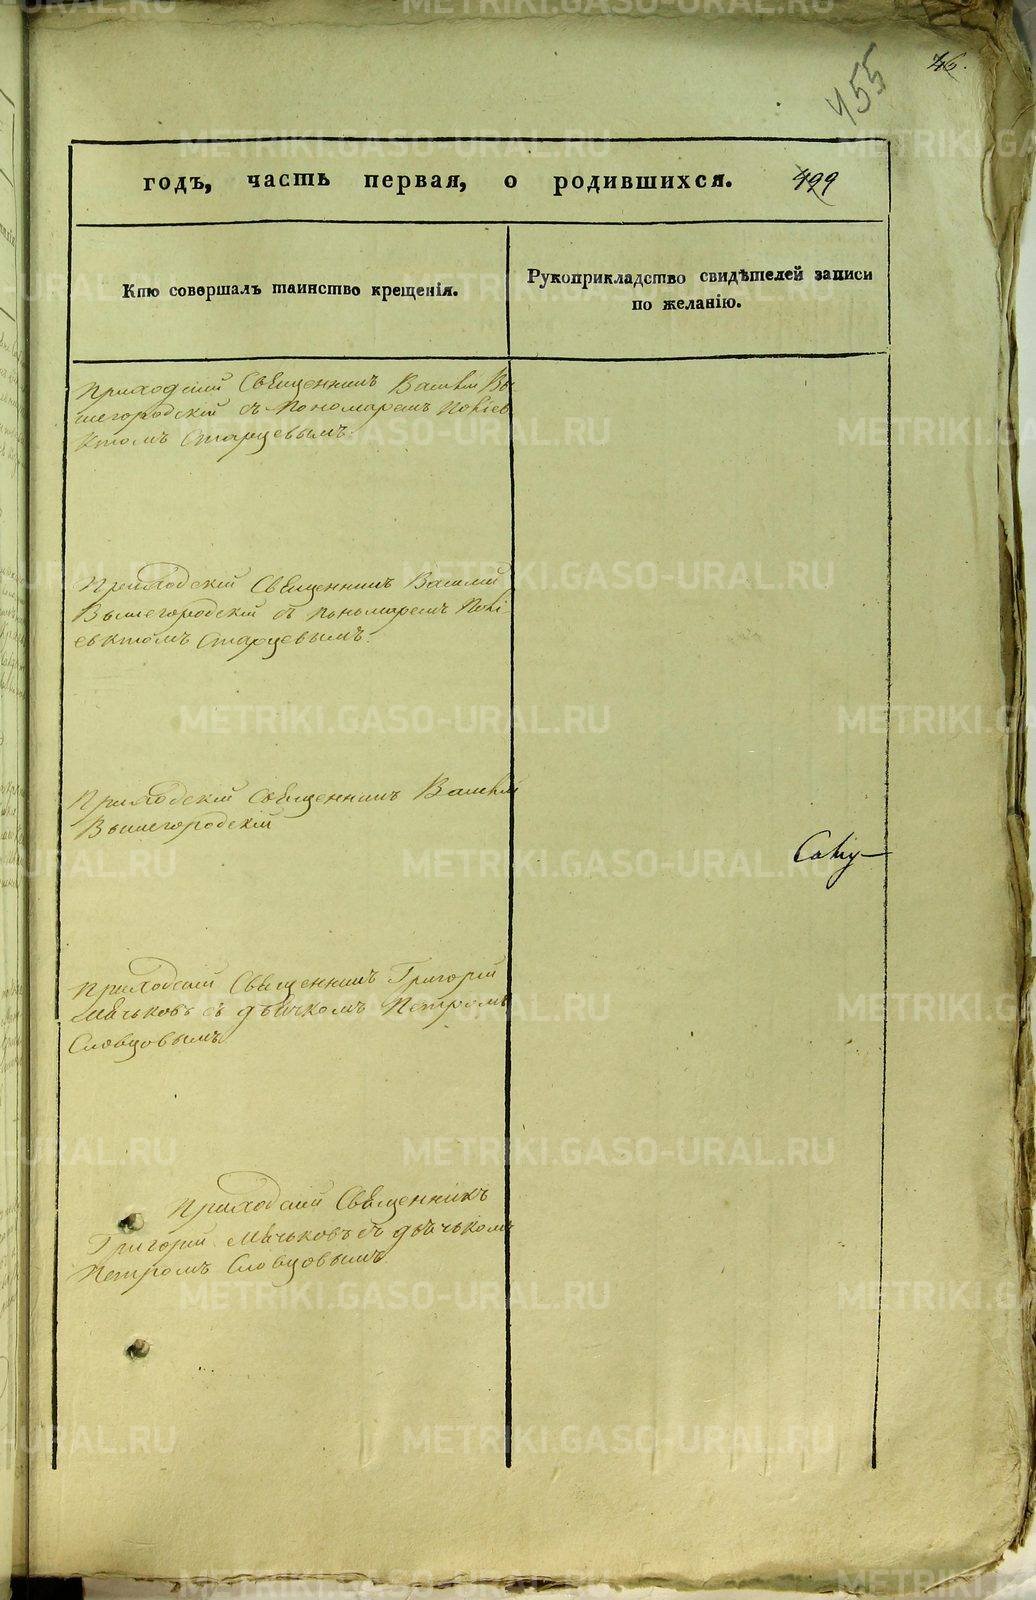 455
46.
годъ, часть первая, о родившихся. 499
Кто совершалъ таинство крещенія.
Рукоприкладство свидѣтелей записи
по желанію.
Приходскій Священникъ Василій Вы
шегородскій съ Пономаремъ Поліев
ктомъ Старцевымъ.
Приходскій Священникъ Василій
Вышегородскій съ пономаремъ Полі
евктомъ Старцевымъ.
Приходскій Священникъ Василій
Вышегородскій
Приходскій Священникъ Григорій
съ дьячкомъ Петромъ
Словцовымъ
Приходскій Священникъ
Григорій съ дьячькомъ
Петромъ Словцовымъ.
METRIKI.GASO-URAL.RU